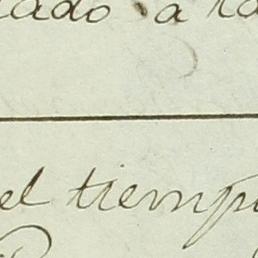 ado a
el tiemp